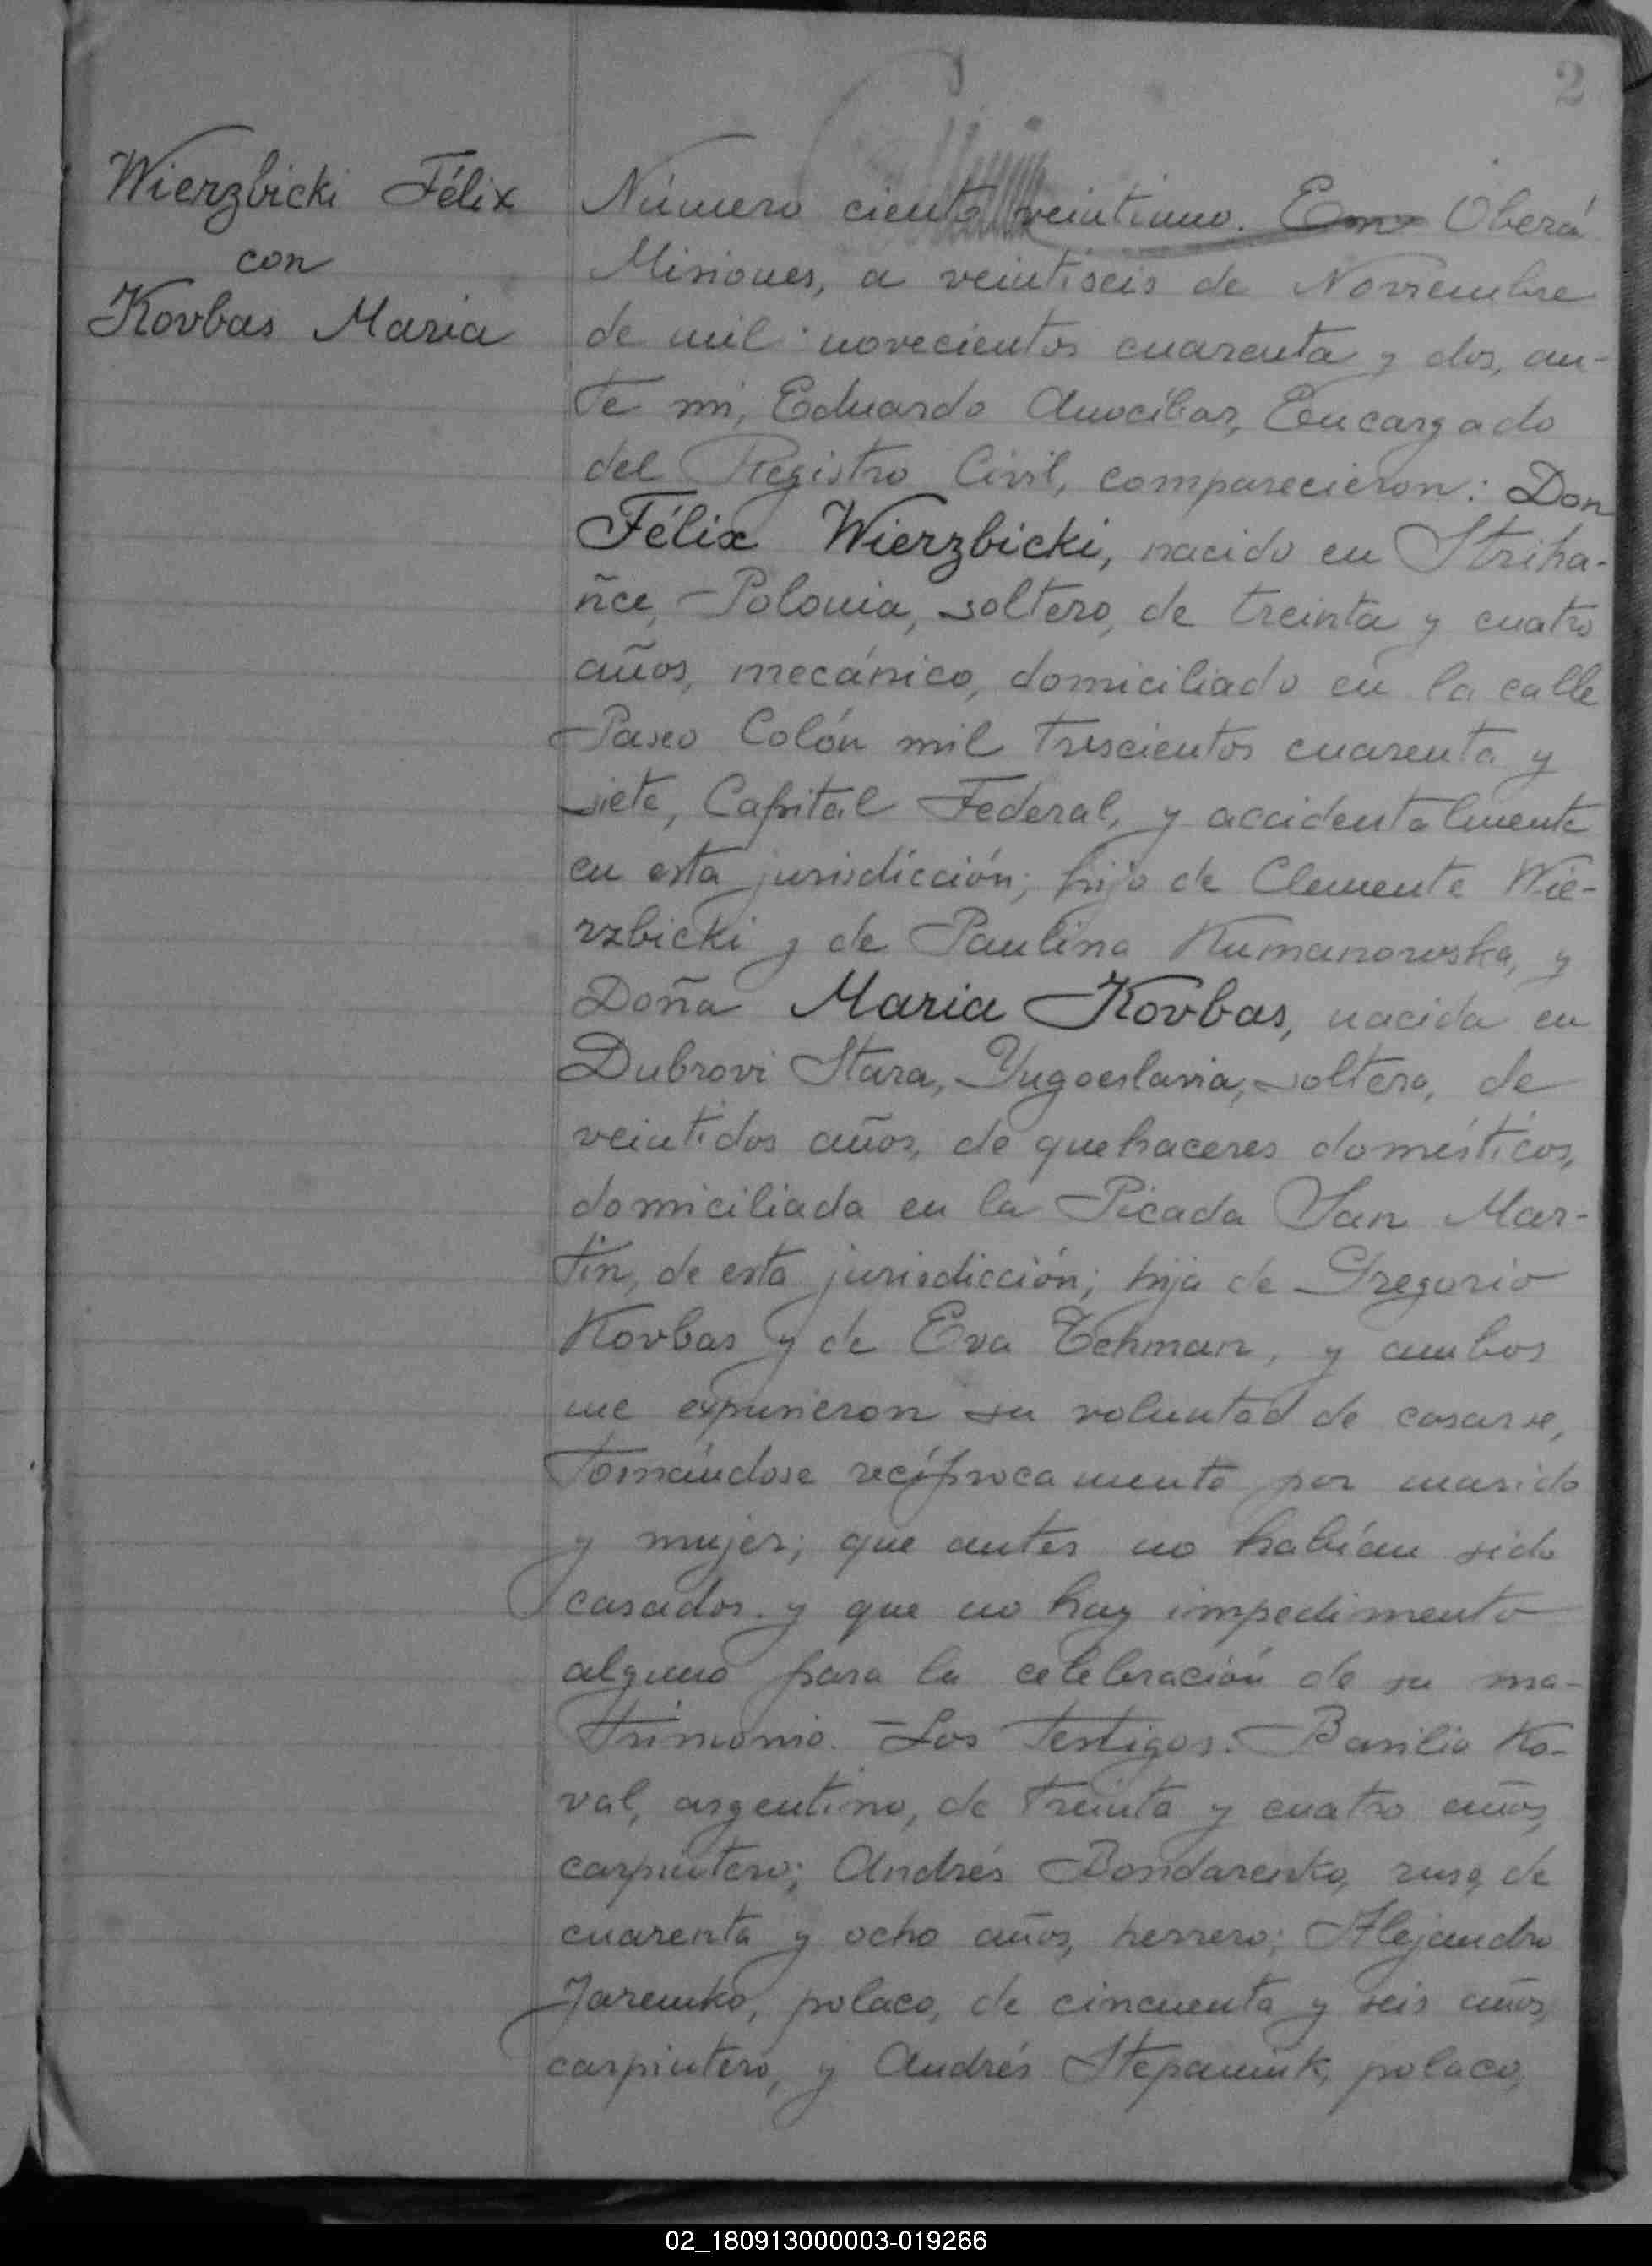 2
Wierzbicki Félix
con
Kovbas Maria
Número ciento veintiuno. En Oberá
Misiones, a veintiseis de Noviembre
de mil novecientos cuarenta y dos, an-
te mi, Eduardo Amocibar, Encargado
del Registro Civil, comparecieron: Don
Félix Wierzbicki, nacido en Striha-
ñce, Polonia, soltero, de treinta y cuatro
años, mecánico, domiciliado en la calle
Paseo Colón mil trescientos cuarenta y
siete, Capital Federal, y accidentalmente
en esta jurisdicción; hijo de Clemente Wie-
rzbicki y de Paulina Kumanowska, y
Doña Maria Kovbas, nacida en
Dubrovi Stara, Yugoeslavia, soltera, de
veintidos años, de quehaceres domésticos,
domiciliada en la Picada San Mar-
tín, de esta jurisdicción; hija de Gregorio
Kovbas y de Eva Tehman, y ambos
me expusieron su voluntad de casarse,
tomándose recíprocamente por marido
y mujer; que antes no habían sido
casados y que no hay impedimento
alguno para la celebración de su ma-
trimonio. Los testigos: Basilio Ko-
val, argentino, de treinta y cuatro años,
carpintero; Andrés Bondarenko, ruso, de
cuarenta y ocho años, herrero; Alejandro
Jaremko, polaco, de cincuenta y seis años,
carpintero, y Andrés Stepaniuk, polaco,
02_180913000003-019266